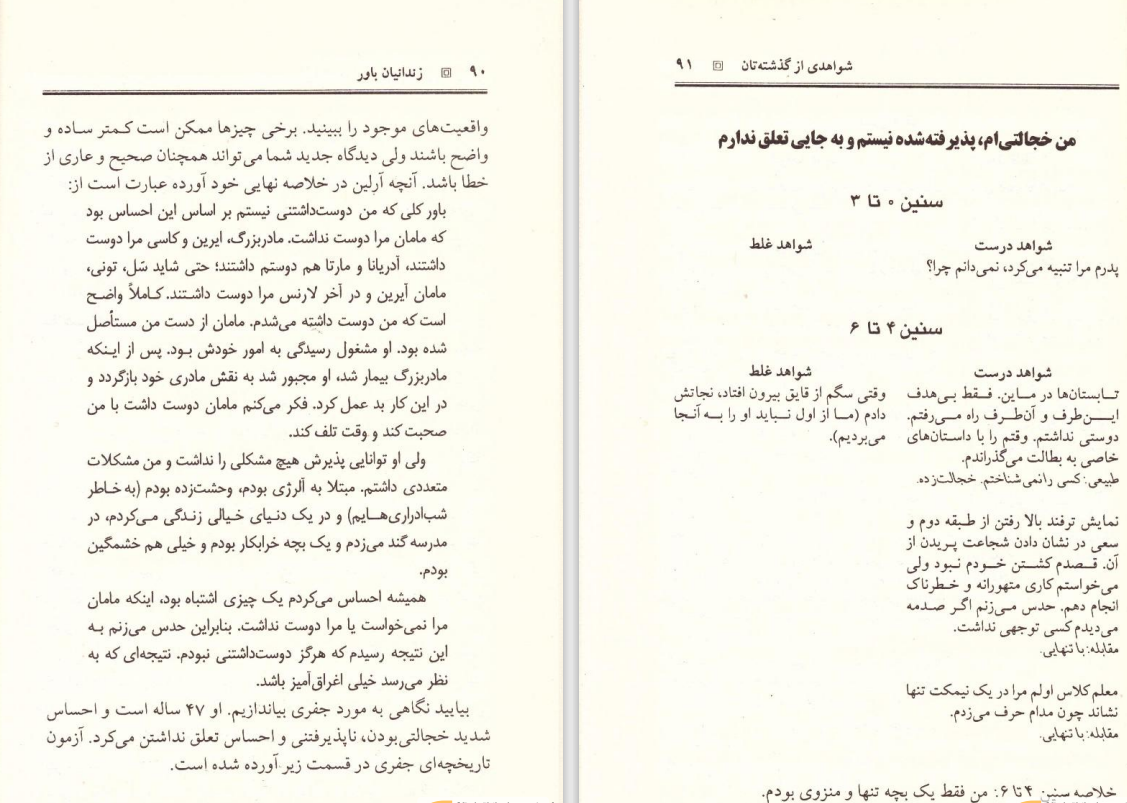 ۹۰ زندانیان باور
واقعیت‌های موجود را ببینید. برخی چیزها ممکن است کمتر ساده و
واضح باشند ولی دیدگاه جدید شما می‌تواند همچنان صحیح و عاری از
خطا باشد. آنچه آرلین در خلاصه نهایی خود آورده عبارت است از:
باور کلی که من دوست‌داشتنی نیستم بر اساس این احساس بود
که مامان مرا دوست نداشت. مادربزرگ، ایرین و کاسی مرا دوست
داشتند، آدریانا و مارتا هم دوستم داشتند؛ حتی شاید سَل، تونی،
مامان آیرین و در آخر لارنس مرا دوست داشتند. کاملاً واضح
است که من دوست داشته می‌شدم. مامان از دست من مستأصل
شده بود. او مشغول رسیدگی به امور خودش بود. پس از اینکه
مادربزرگ بیمار شد، او مجبور شد به نقش مادری خود بازگردد و
در این کار بد عمل کرد. فکر می‌کنم مامان دوست داشت با من
صحبت کند و وقت تلف کند.
ولی او توانایی پذیرش هیچ مشکلی را نداشت و من مشکلات
متعددی داشتم. مبتلا به آلرژی بودم، وحشت‌زده بودم (به خاطر
شب‌ادراری‌هایم) و در یک دنیای خیالی زندگی می‌کردم، در
مدرسه گند می‌زدم و یک بچه خرابکار بودم و خیلی هم خشمگین
بودم.
همیشه احساس می‌کردم یک چیزی اشتباه بود، اینکه مامان
مرا نمی‌خواست یا مرا دوست نداشت. بنابراین حدس می‌زنم به
این نتیجه رسیدم که هرگز دوست‌داشتنی نبودم. نتیجه‌ای که به
نظر می‌رسد خیلی اغراق‌آمیز باشد.
بیایید نگاهی به مورد جفری بیاندازیم. او ۴۷ ساله است و احساس
شدید خجالتی‌بودن، ناپذیرفتنی و احساس تعلق نداشتن می‌کرد. آزمون
تاریخچه‌ای جفری در قسمت زیر آورده شده است.
شواهدی از گذشته‌تان ۹۱
من خجالتی‌ام، پذیرفته‌شده نیستم و به جایی تعلق ندارم
سنین ۰ تا ۳
شواهد درست
پدرم مرا تنبیه می‌کرد، نمی‌دانم چرا؟
شواهد غلط
سنین ۴ تا ۶
شواهد درست
تابستان‌ها در ماین. فقط بی‌هدف
این‌طرف و آن‌طرف راه می‌رفتم.
دوستی نداشتم. وقتم را با داستان‌های
خاصی به بطالت می‌گذراندم.
طبیعی: کسی را نمی‌شناختم. خجالت‌زده.
نمایش ترفند بالا رفتن از طبقه دوم و
سعی در نشان دادن شجاعت پریدن از
آن. قصدم کشتن خودم نبود ولی
می‌خواستم کاری متهورانه و خطرناک
انجام دهم. حدس می‌زنم اگر صدمه
می‌دیدم کسی توجهی نداشت.
مقابله: با تنهایی.
معلم کلاس اولم مرا در یک نیمکت تنها
نشاند چون مدام حرف می‌زدم.
مقابله: با تنهایی.
شواهد غلط
وقتی سگم از قایق بیرون افتاد، نجاتش
دادم (ما از اول نباید او را به آنجا
می‌بردیم).
خلاصه سنین ۴ تا ۶: من فقط یک بچه تنها و منزوی بودم.